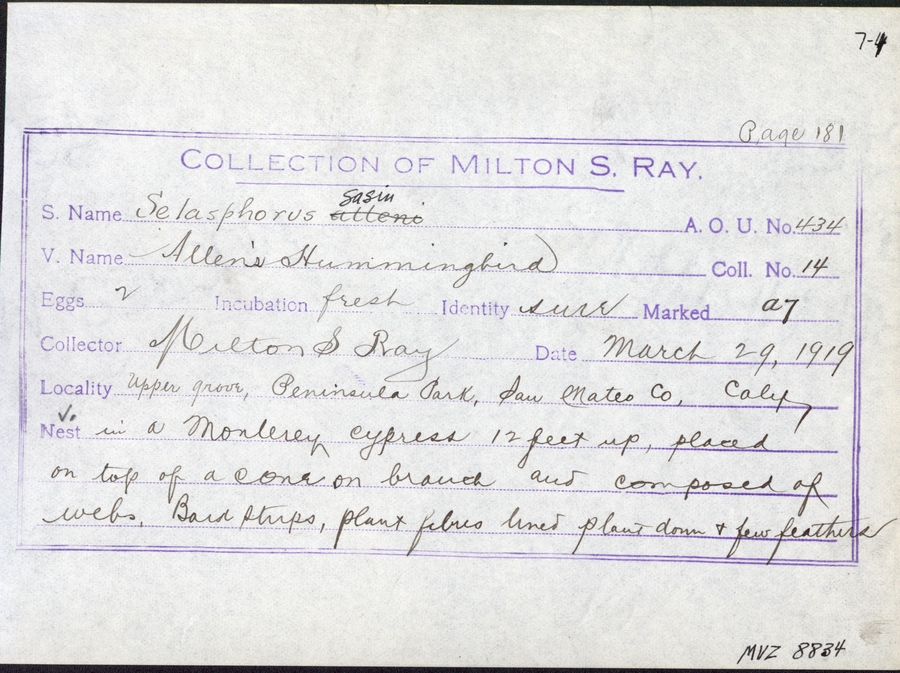 7-4
Page 181
COLLECTION OF MILTON S. RAY.
sasin
S. Name Selasphorus alleni A. O. U. No. 434
V. Name Allen's Hummingbird Coll. No. 14
Eggs 2 Incubation fresh Identity sure Marked a7
Collector Milton S Ray Date March 29, 1919
Locality Upper grove, Peninsula Park, San Mateo Co, Calif
V.
Nest in a Monterey cypress 12 feet up, placed
on top of a cone on branch and composed of
webs, Bard strips, plant fibres lined plant down & few feathers
MVZ 8834